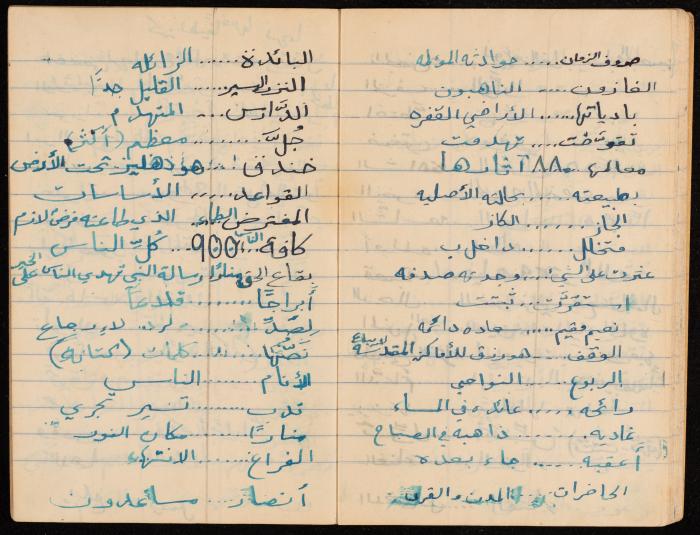 صروف الزمان..... حوادثه المؤلمه
الغازون.... الناهبون
بادياتها..... الأراضي القفره
تقوضت.... تهدمت
معالمها.... آثارها
بطبيعته...... بحالته الأصليه
الجاز....... الكاز
متخلل..... داخل ب
عثرت على الشيء... وجدته صدفه
تقررت.... ثبتت
نعيم مقيم..... حاده دائمه
الوقف.... هو رزق للأماكن المقدسة
الربوع.... النواحي
رائحه..... عائده في المساء
غاديه....... ذاهبه في الصباح
أعقبه...... جاء بعده
الحاضرات.... المدن والقرى
البائدة...... الزائله
النزر اليسير.... القليل جدًا
الدَّارس.... المتهدم
جُلَّ........ معظم (أكثر)
خندق.... هو دهليز تحت الأرض
القواعد..... الأساسات
المفترض الطاعه. الذي طاعته فرض لازم
كافة الناس... كلّ الناس
بقاع الحق منائر رسالة النبي تهدي الناس على الخير
أبراجًا....... قلاعاً
لصدِّ........ لرد. لإرجاع
نصُّها...... كلمات (كتابه)
الأنام...... الناس
تدب........ تسير تجري
منارًا....... مكان النور
الفراغ...... الانتهاء
أنصار... مساعدون